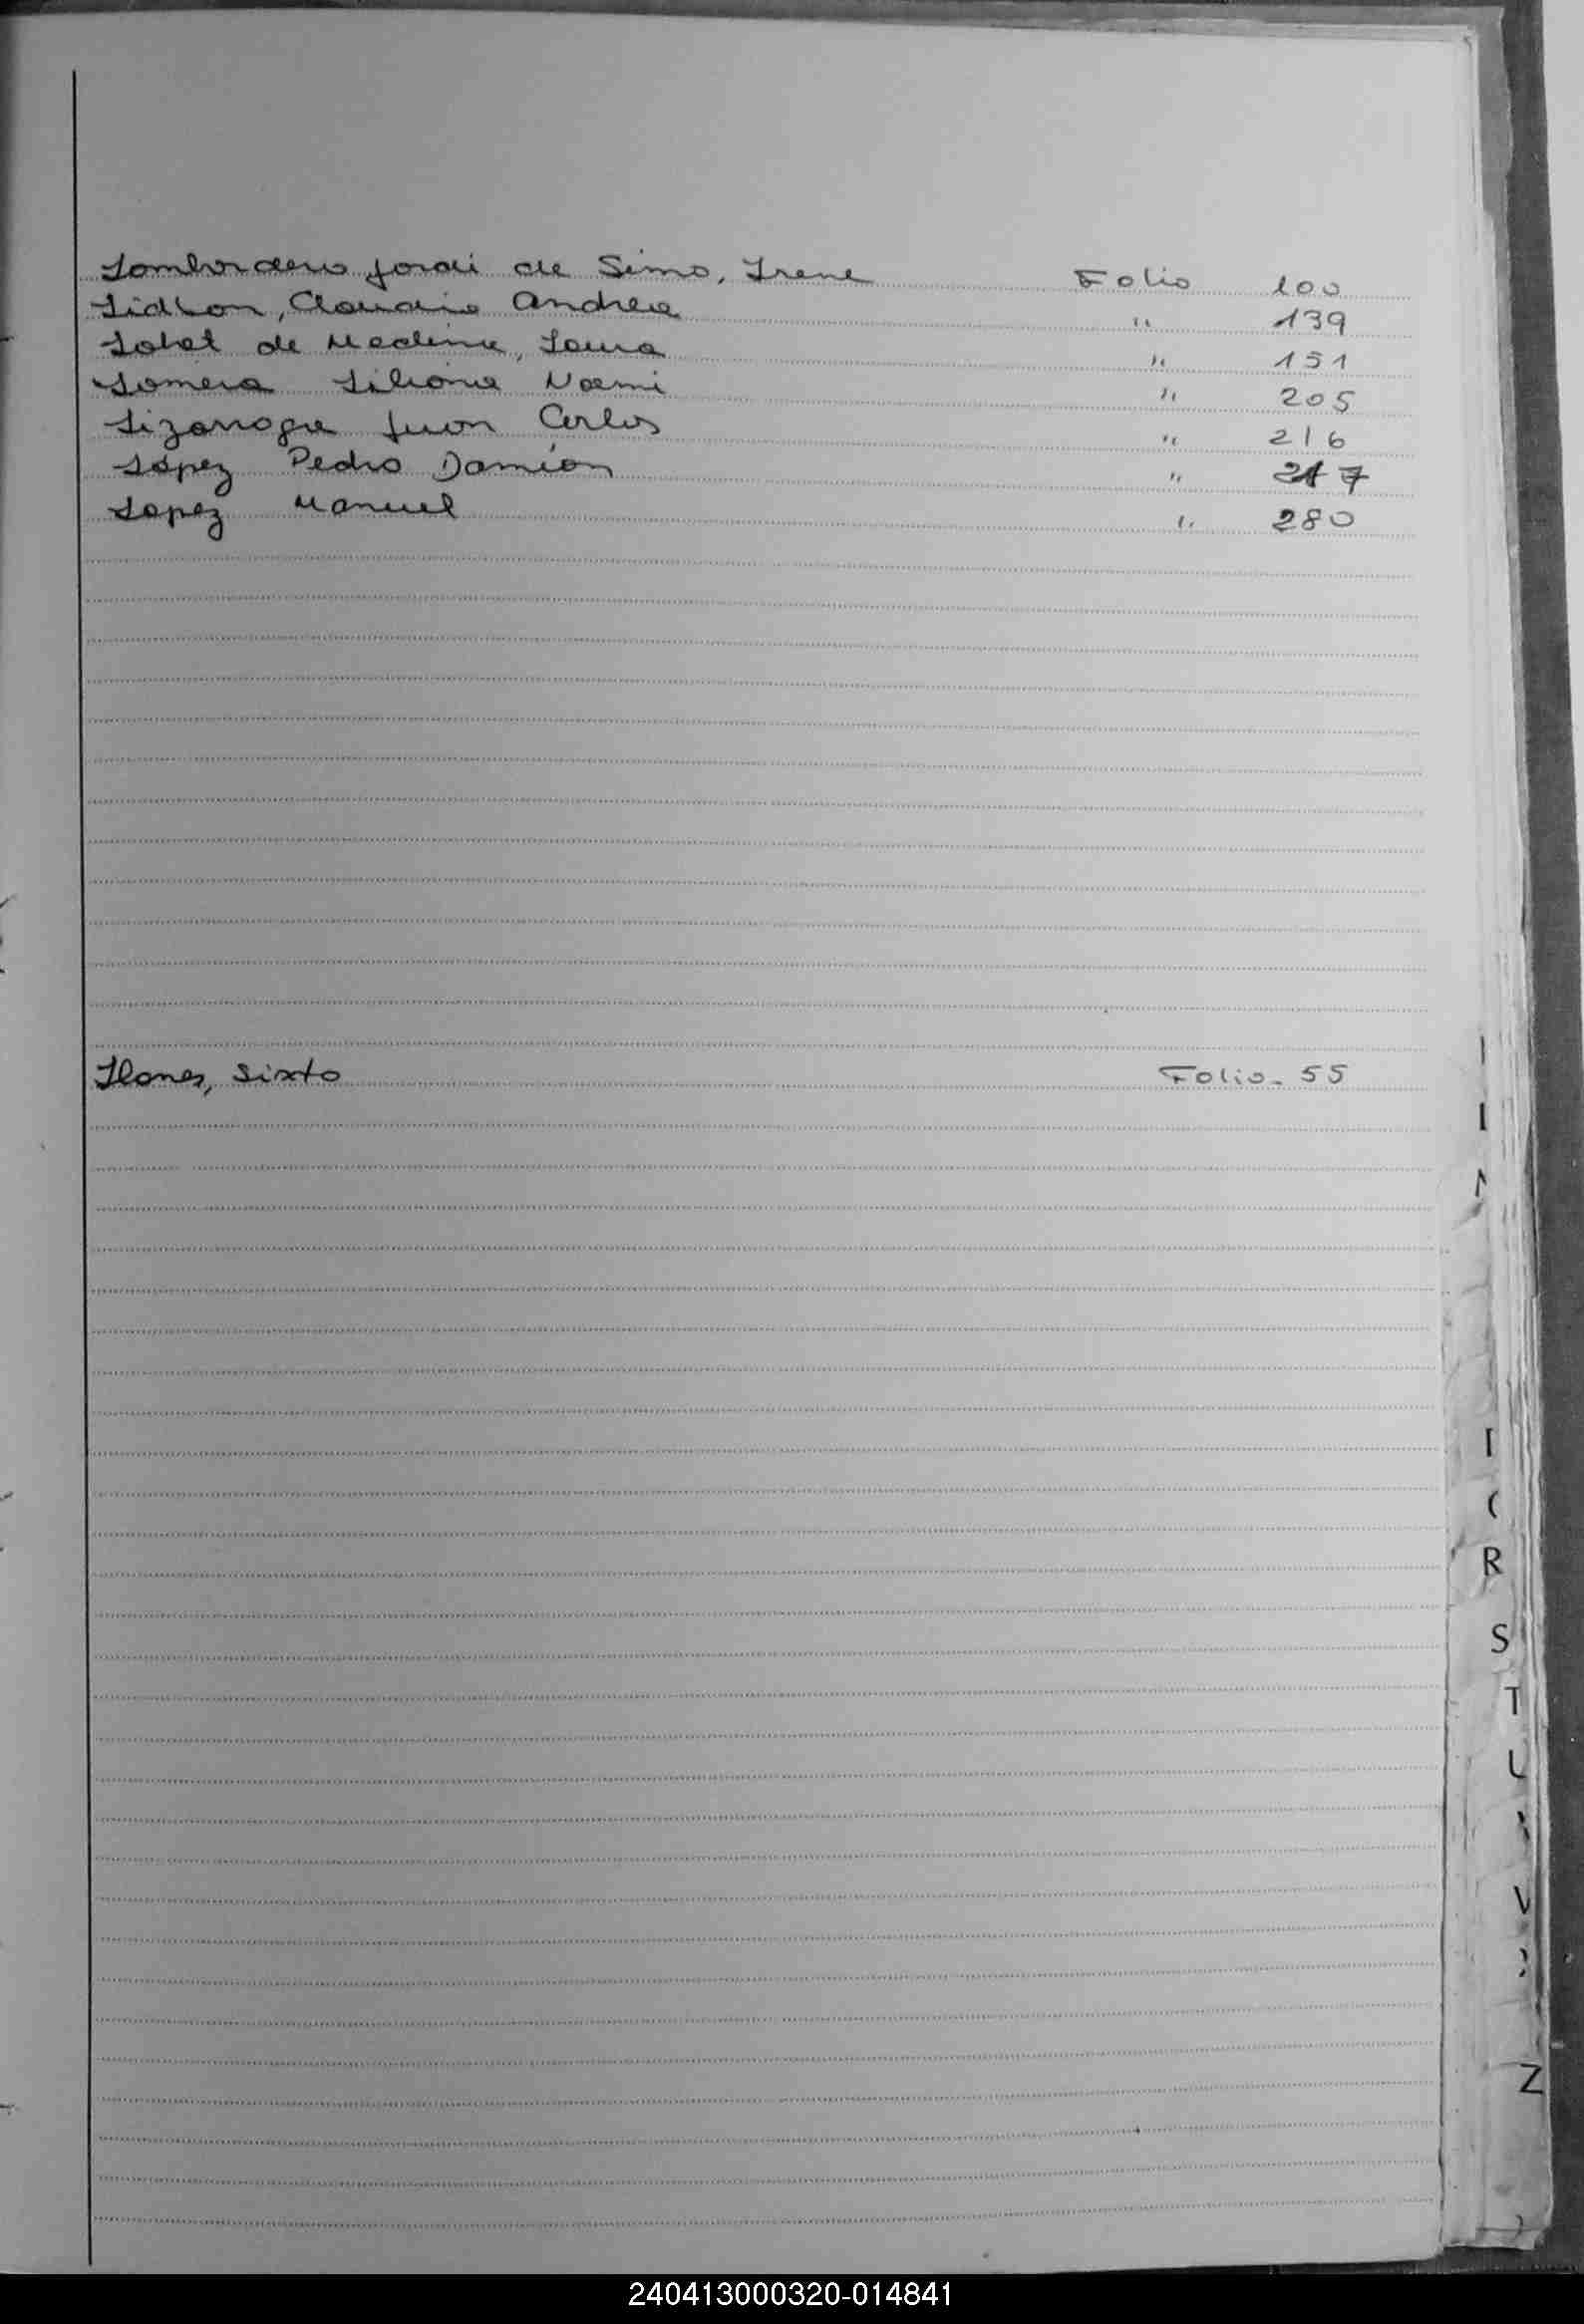 Lombardero Jordi de Simo, Irene Folio 100
Lidbon, Claudio Andrea " 139
Lobet de Medina, Laura " 151
Lomera Liliana Noemi " 205
Lizarraga Juan Carlos " 216
López Pedro Damián " 217
Lopez Manuel " 280
Llanes, Sixto Folio. 55
R
S
T
V
Z
240413000320-014841